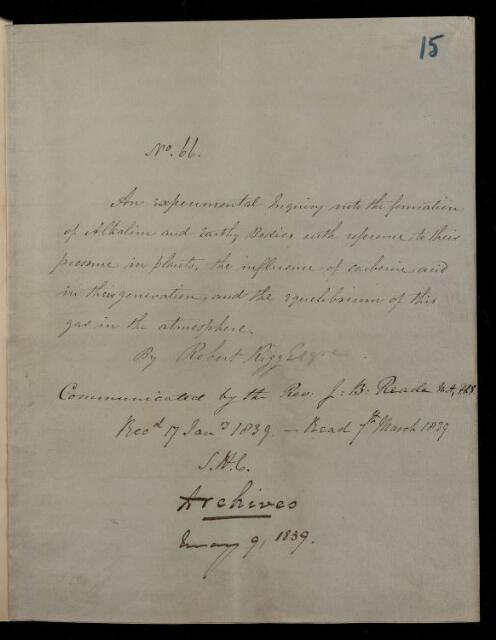 15
No. 66.
An experimental Enquiry into the formation
of Alkaline and Earthy Bodies with reference to their
presence in plants, the influence of carbonic acid
in their generation, and the equilibrium of this
gas in the atmosphere.
By Robert Rigg Esqre
Communicated by the Rev: J: B: Reade M.A, F.R.S.
Recd 17 Jany 1839. — Read 7th March 1839
S.H.C.
Archives
May 9, 1839.